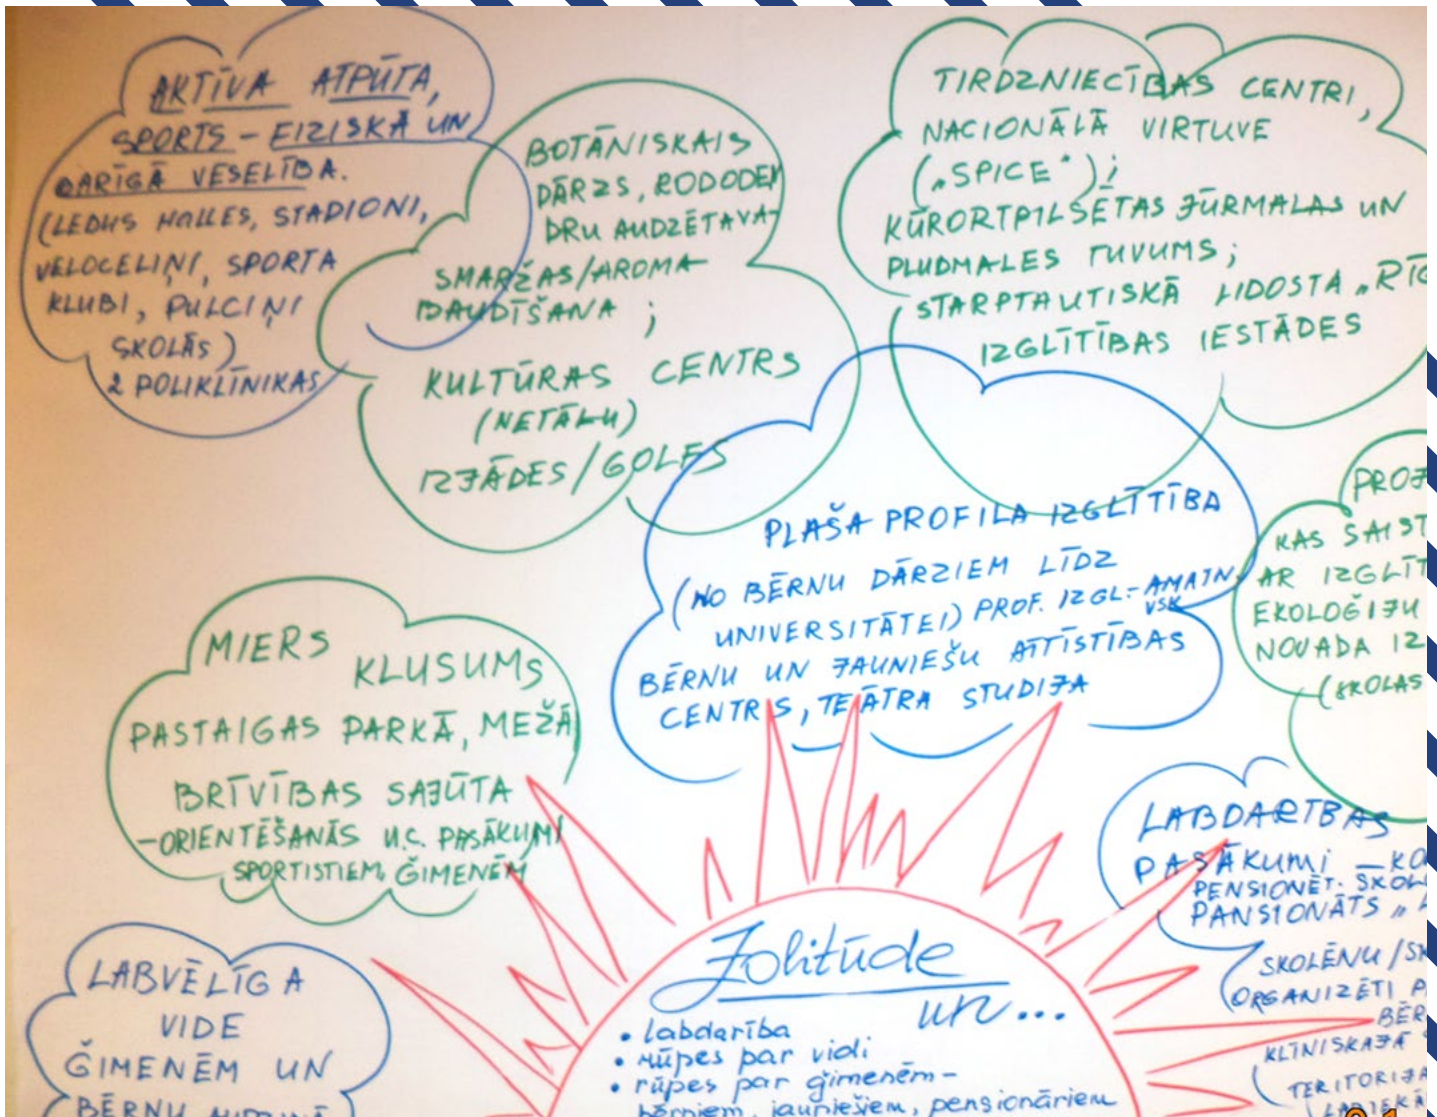 AKTĪVA ATPŪTA,
SPORTS - FIZISKĀ UN
GARĪGĀ VESELĪBA.
(LEDUS HALLES, STADIONI,
VELOCELIŅI, SPORTA
KLUBI, PULCIŅI
SKOLĀS)
2 POLIKLĪNIKAS
BOTĀNISKAIS
DĀRZS, RODODEN
DRU AUDZĒTAVA-
SMARŽAS/AROMA
BAUDĪŠANA ;
KULTŪRAS CENTRS
(NETĀLU)
IZJĀDES/GOLFS
TIRDZNIECĪBAS CENTRI,
NACIONĀLĀ VIRTUVE
(„SPICE");
KŪRORTPILSĒTAS JŪRMALAS UN
PLUDMALES TUVUMS;
STARPTAUTISKĀ LIDOSTA „RĪG
IZGLĪTĪBAS IESTĀDES
PLAŠA PROFILA IZGLĪTĪBA
(NO BĒRNU DĀRZIEM LĪDZ
UNIVERSITĀTEI) PROF. IZGL.- AMATN.
VSK
BĒRNU UN JAUNIEŠU ATTĪSTĪBAS
CENTRS, TEĀTRA STUDIJA
PROJ
KAS SAIST
AR IZGLĪT
EKOLOĢIJU
NOVADA IZ
(SKOLAS
MIERS
KLUSUMS
PASTAIGAS PARKĀ, MEŽĀ
BRĪVĪBAS SAJŪTA
-ORIENTĒŠANĀS U.C. PASĀKUMI
SPORTISTIEM, ĢIMENĒM
LABDARĪBAS
PASĀKUMI - KO
PENSIONĒT. SKOL
PANSIONĀTS „
SKOLĒNU/SK
ORGANIZĒTI P
BĒR
KLĪNISKAJĀ
TERITORIJA
LABVĒLĪGA
VIDE
ĢIMENĒM UN
BĒRNU
Zolitūde
un...
• labdarība
• rūpes par vidi
• rūpes par ģimenēm-
bērniem, jauniešiem, pensionāriem